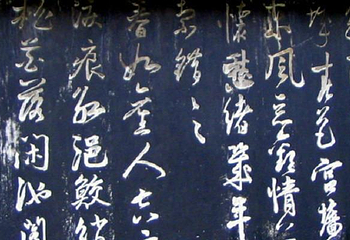 城春色宮墻
東風惡歡情
懷愁緒幾年
索錯〻〻
春如舊人空
淚痕紅浥鮫綃
桃花落閑池閣